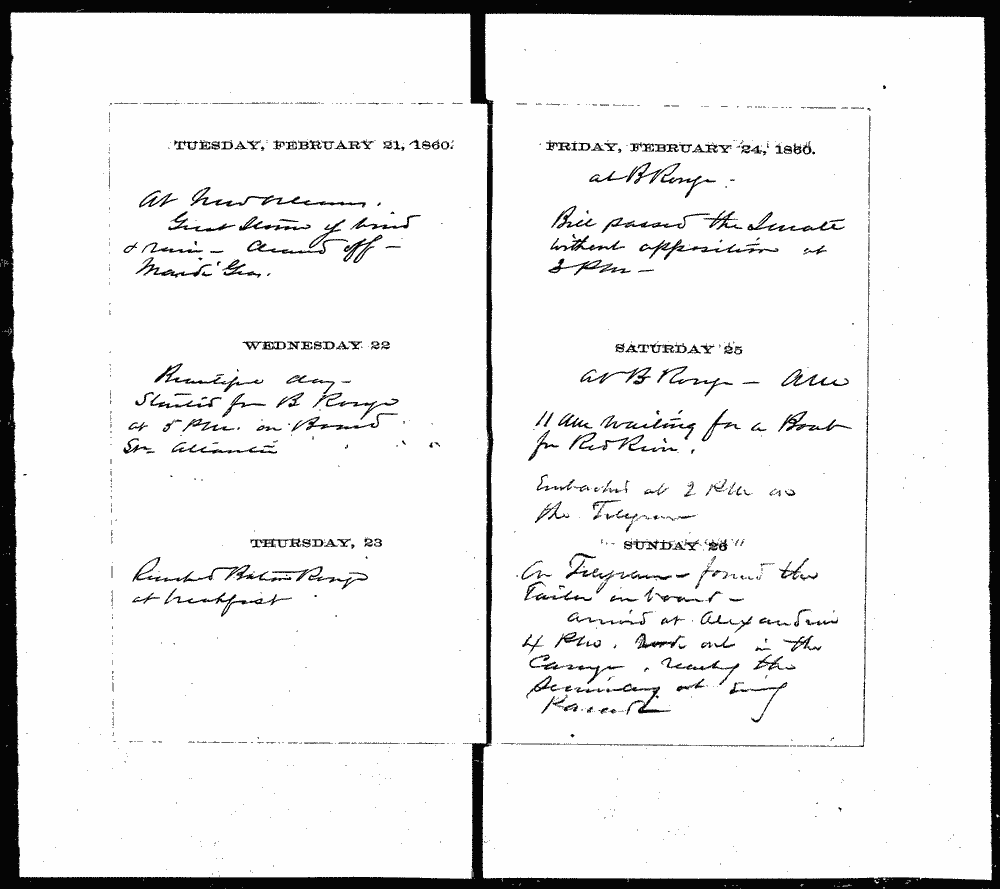 TUESDAY, FEBRUARY 21, 1860.
At New Orleans.
Great Storm of wind
& rain - cleared off -
Mardi Gras.
WEDNESDAY 22
Beautiful day -
Started for B Rouge
at 5 PM. on Board
Str Atlantic
THURSDAY, 23
Reached Baton Rouge
at breakfast
FRIDAY, FEBRUARY 24, 1860.
at B Rouge -
Bill passed the Senate
without opposition at
3 PM -
SATURDAY 25
at B Rouge -
11 AM waiting for a Boat
for Red River.
Embarked at 2 PM on
the Telegram
SUNDAY 26
On Telegram - found the
Tailor on board -
arrived at Alexandria
4 PM. out in the
Carryge, the
Seminary at